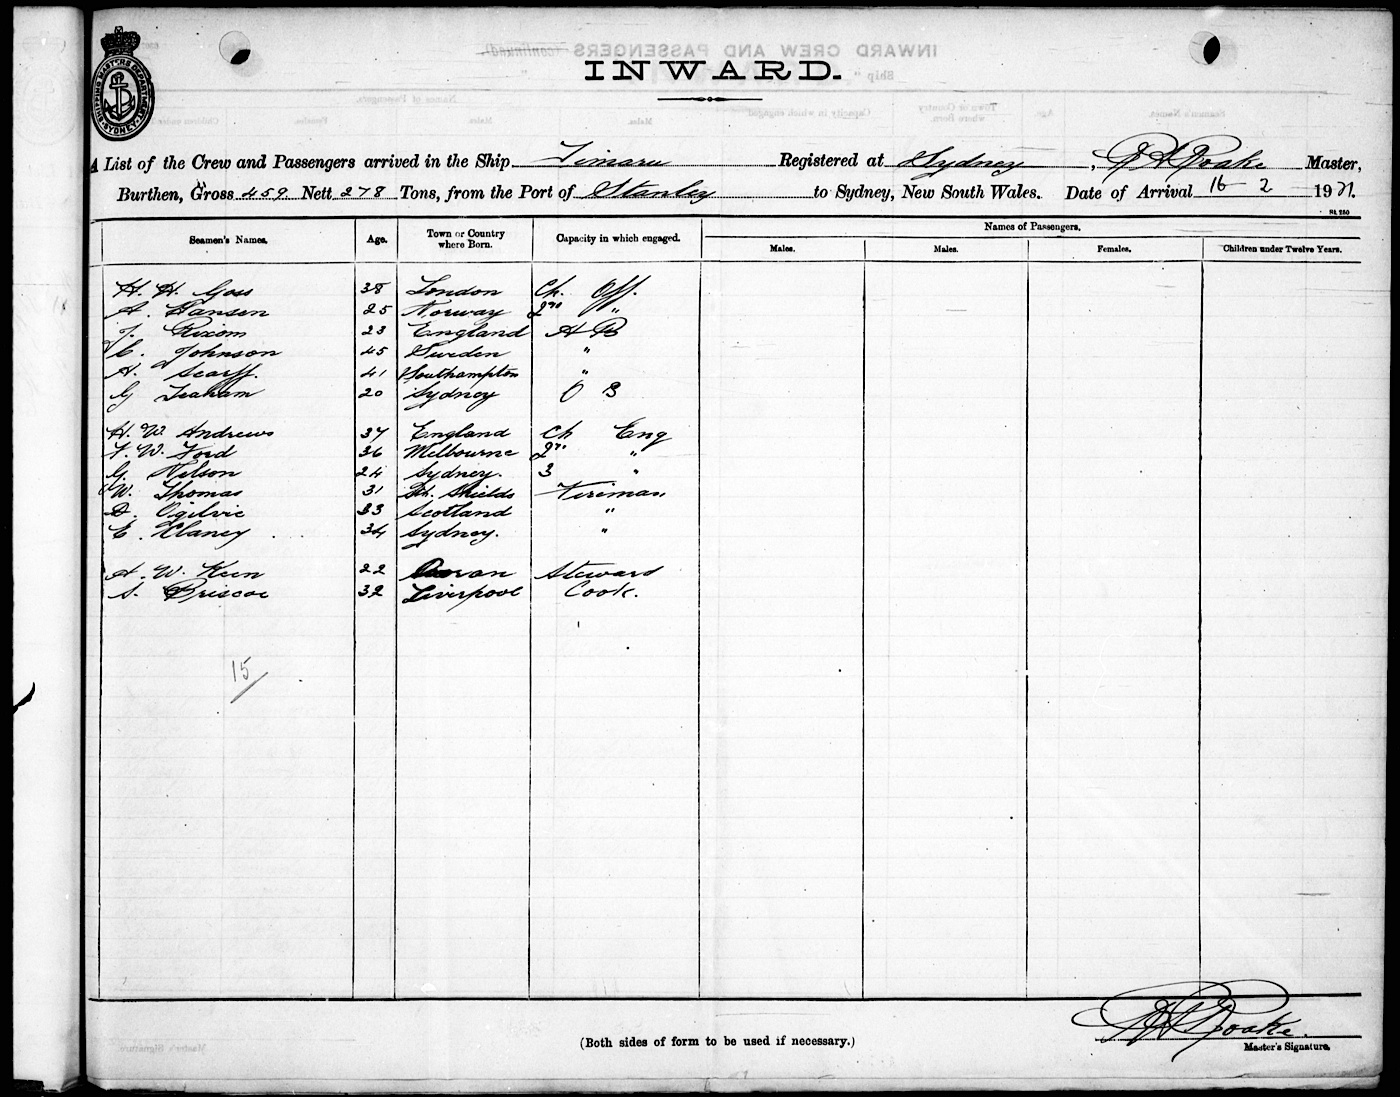 SHIPPING MASTERS DEPARTMENT SYDNEY
INWARD.
A List of the Crew and Passengers arrived in the Ship Timaru Registered at Sydney, Roake Master,
Burthen, Gross 459 Nett 278 Tons, from the Port of Stanley to Sydney, New South Wales. Date of Arrival 16 2 1921.
Seamen's Names. Age. Town or Country where Born. Capacity in which engaged. Names of Passengers.
Males. Males. Females. Children under Twelve Years.
H. H. Goss 38 London Ch. Off.
A. Hansen 25 Norway 2nd "
J. Rixom 23 England A B
C. Johnson 45 Sweden "
A. Scarff. 41 Southampton "
G Teaham 20 Sydney O B
H. W. Andrews 37 England Ch Eng
F. W. Ford 36 Melbourne 2nd "
G. Nelson 24 Sydney. 3 "
W. Thomas 31 Sth. Shields Fireman
D. Ogilvie 33 Scotland "
E. Clancy 34 Sydney. "
A. W. Keen 22 Steward
S. Briscoe 32 Liverpool Cook.
15
Roake.
(Both sides of form to be used if necessary.)
Master's Signature.